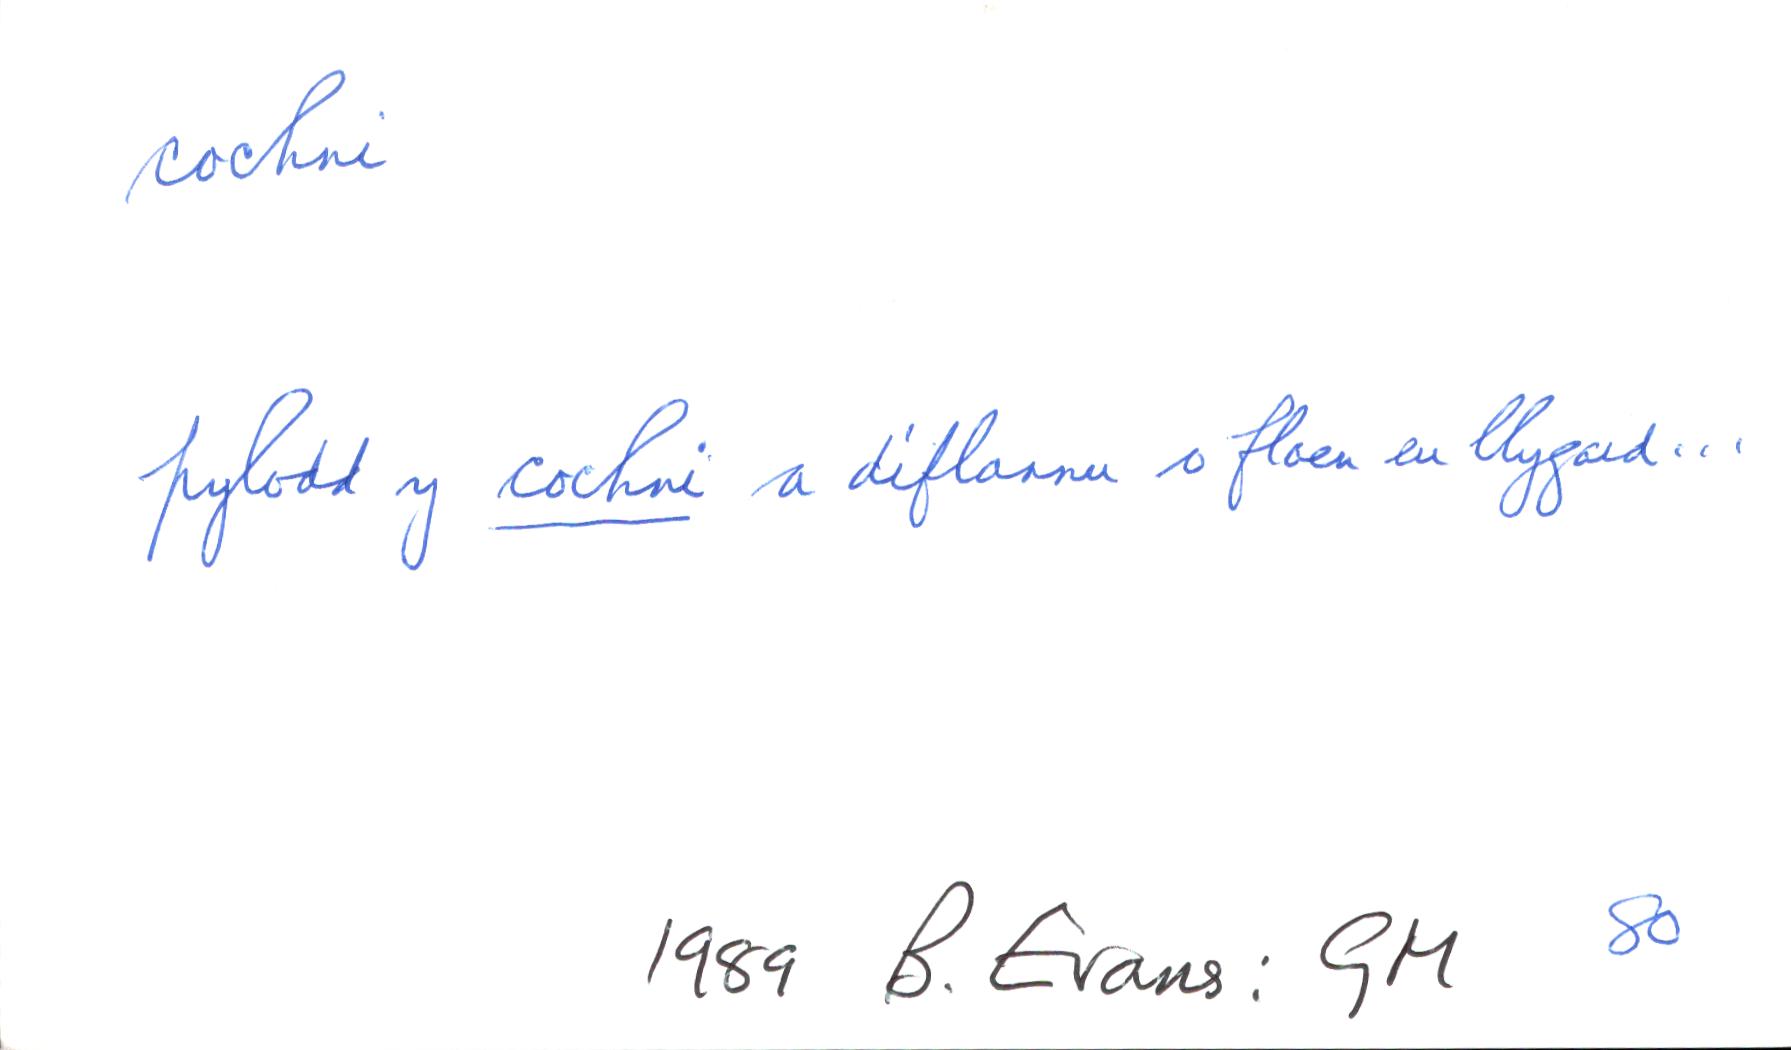 cochni
pylodd y cochni a diflannu o flaen eu llygaid...
1989 B. Evans: GM 80